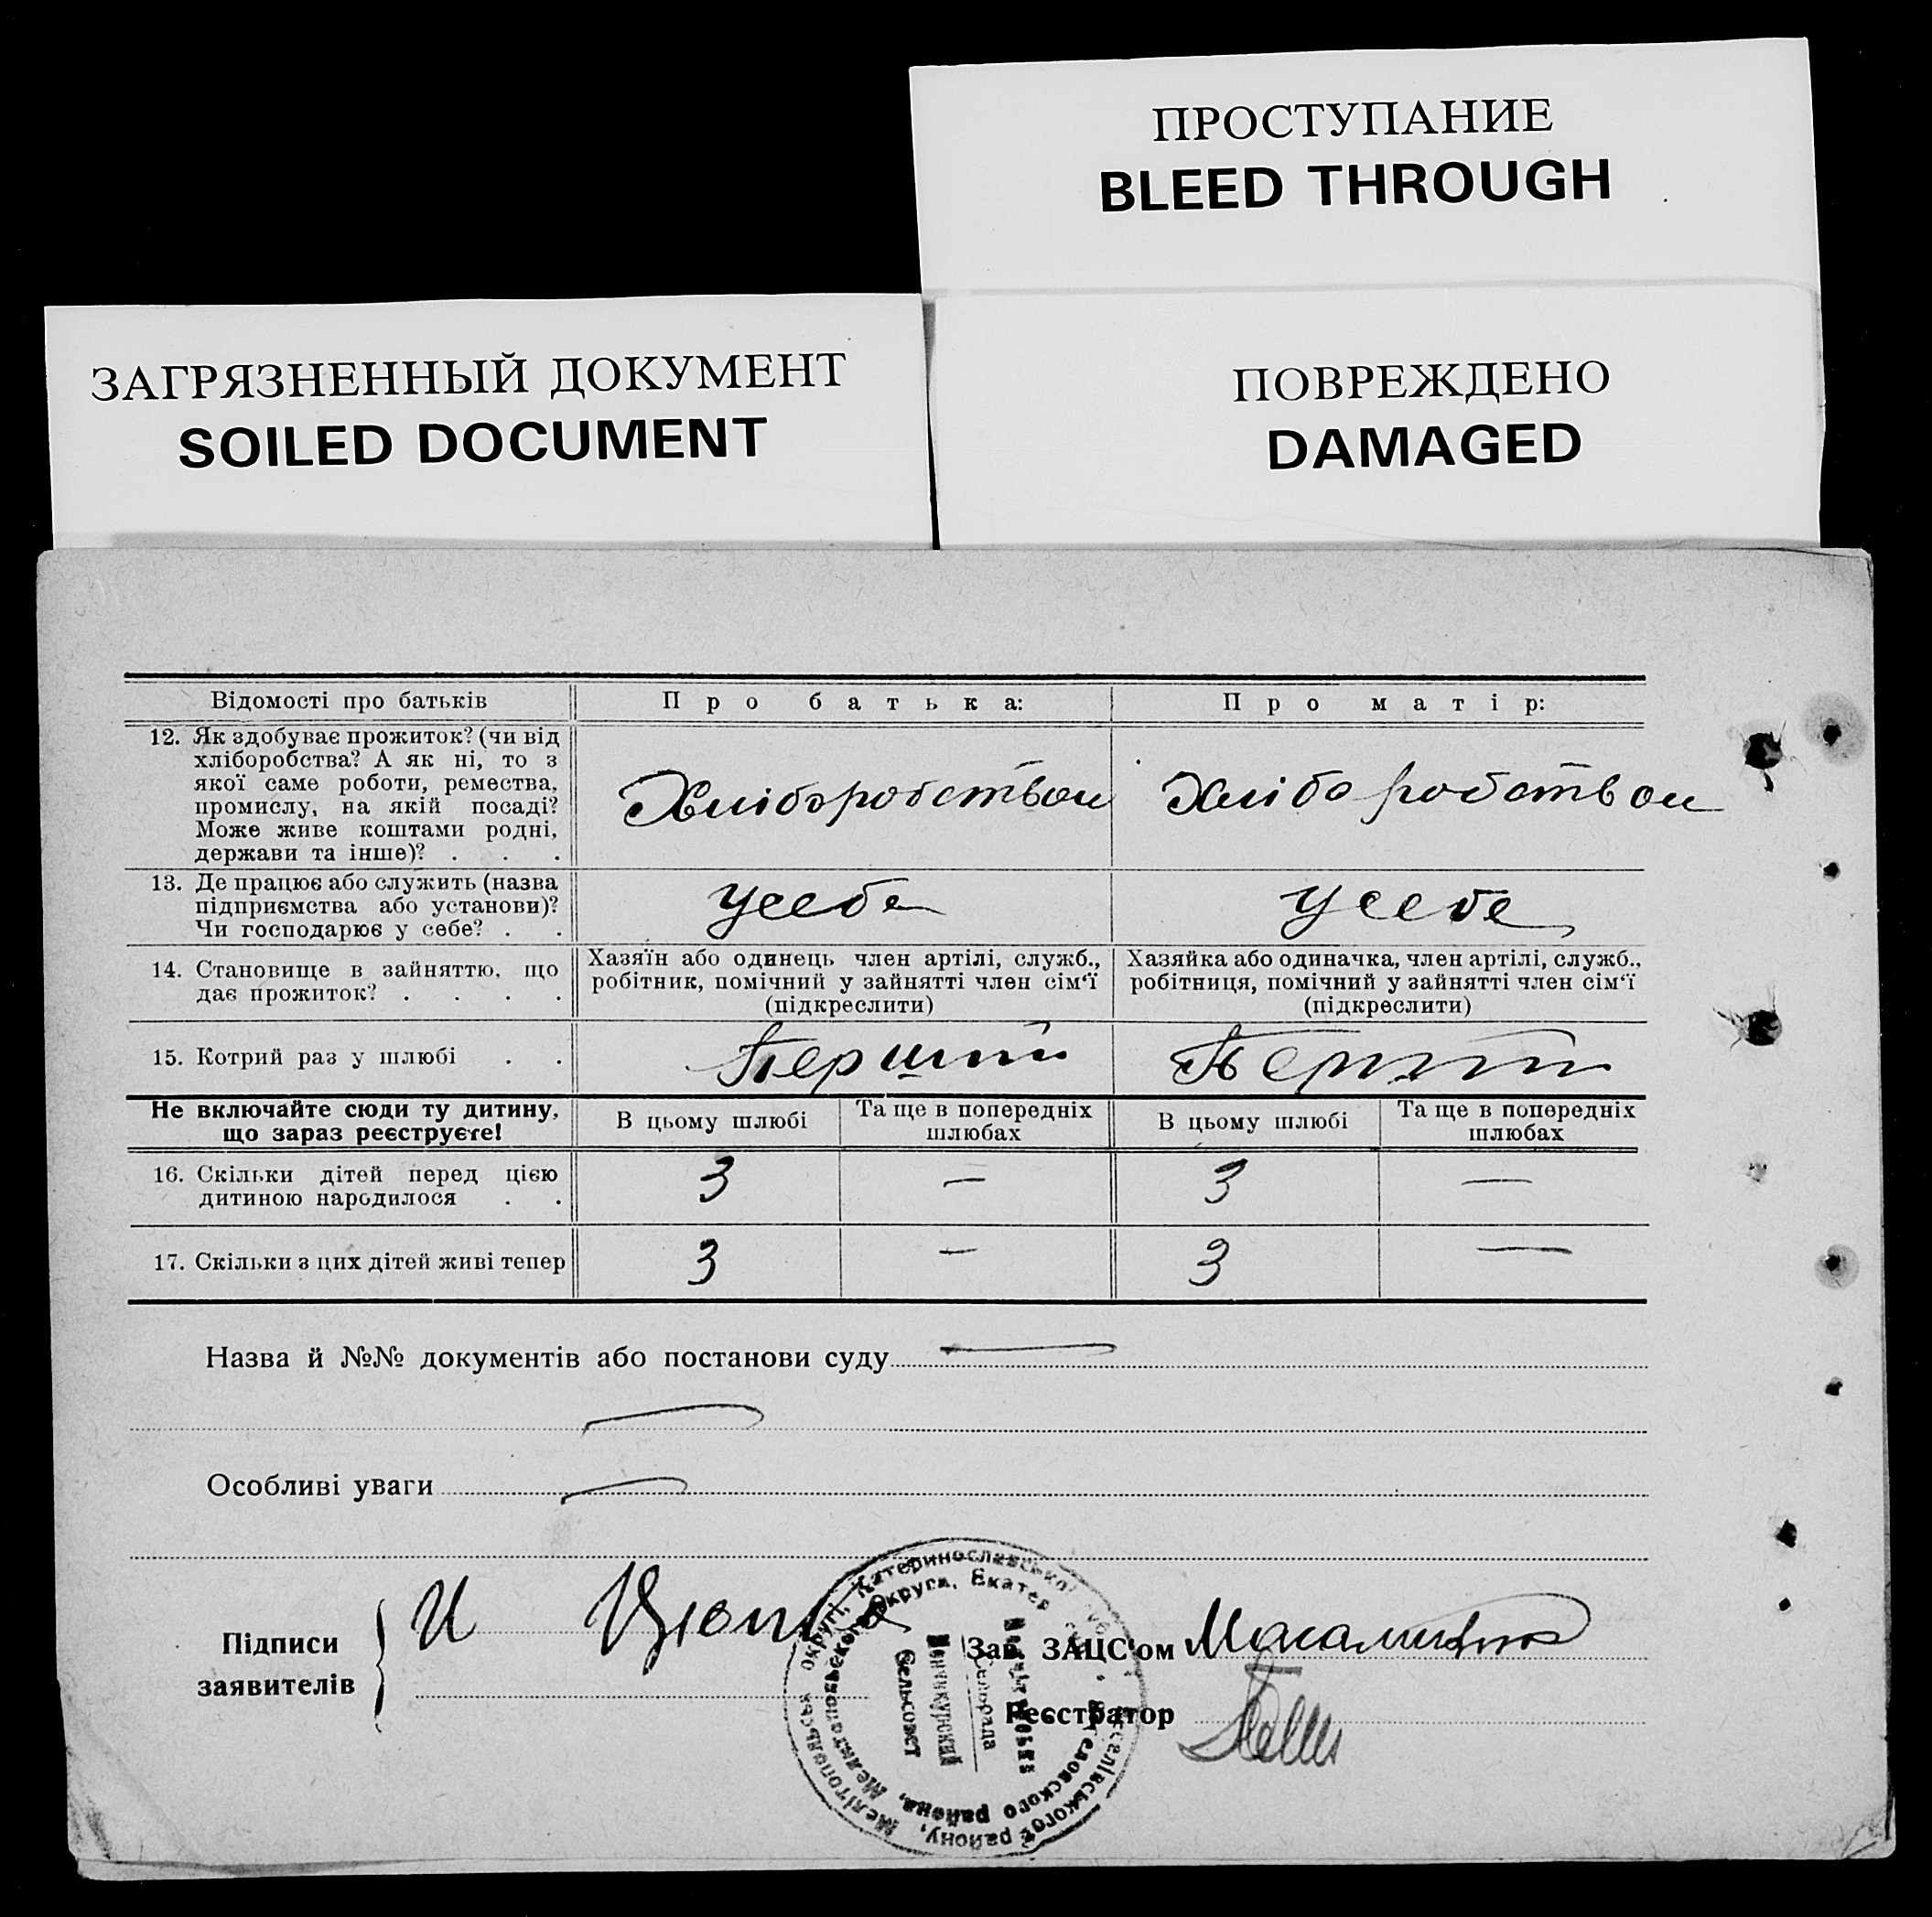 ПРОСТУПАНИЕ
BLEED THROUGH
ЗАГРЯЗНЕННЫЙ ДОКУМЕНТ
SOILED DOCUMENT
ПОВРЕЖДЕНО
DAMAGED
Відомості про батьків
Про батька:
Про матір:
12. Як здобуває прожиток? (чи від
хліборобства? А як ні, то з
якої саме роботи, ремества,
промислу, на якій посаді?
Може живе коштами родні,
держави та інше)? . . .
Хліборобством
Хліборобством
13. Де працює або служить (назва
підприємства або установи)?
Чи господарює у себе? . .
Усебе
Усебе
14. Становище в зайняттю, що
дає прожиток? . . . .
Хазяїн або одинець член артілі, служб.,
робітник, помічний у зайнятті член сім'ї
(підкреслити)
Хазяйка або одиначка, член артілі, служб.,
робітниця, помічний у зайнятті член сім'ї
(підкреслити)
15. Котрий раз у шлюбі . .
Перший
Перший
Не включайте сюди ту дитину,
що зараз реєструєте!
В цьому шлюбі
Та ще в попередніх
шлюбах
В цьому шлюбі
Та ще в попередніх
шлюбах
16. Скільки дітей перед цією
дитиною народилося . .
3 — 3 —
17. Скільки з цих дітей живі тепер
3 — 3 —
Назва й №№ документів або постанови суду
Особливі уваги
Підписи
заявителів
Зав. ЗАЦС'ом
Реєстратор
Сельсовет
сельрада
району, Мелітопольськ округі, Катеринославсько
района, Мелитопольского округа, Екатер